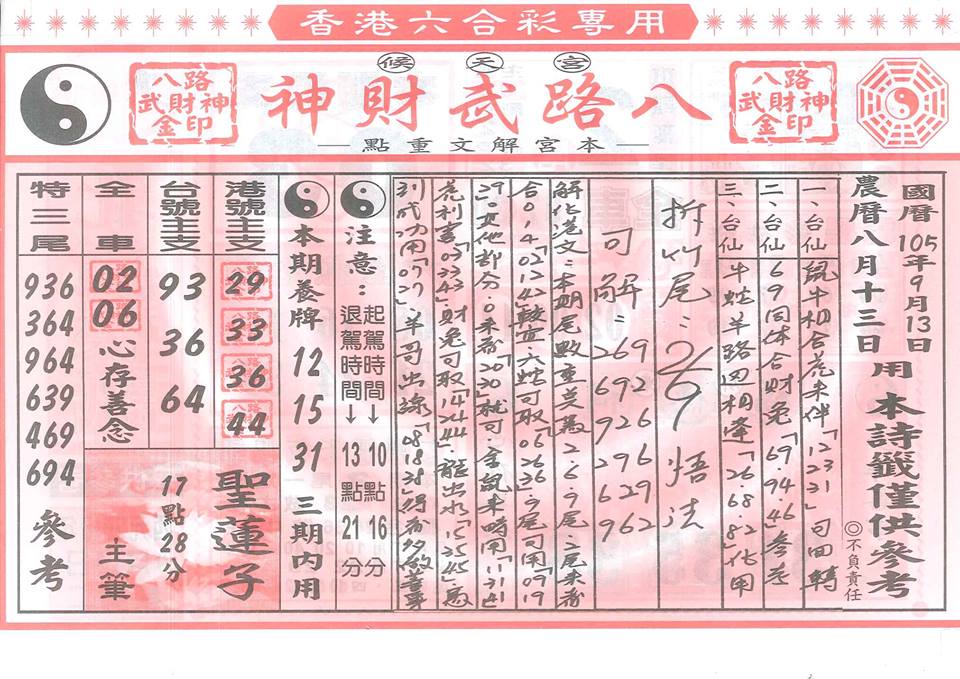 香港六合彩專用
候天宮
八路武財神
本宮解文重點
八路
武財神
金印
八路
武財神
金印
國曆105年9月13日
農曆八月十三日
用本詩籤僅供參考
◎不負責任
一、台仙 鼠牛相合花來伴「12.23.31」可回轉
二、台仙 69同体合財兔「69.94.46」參差
三、台仙 牛蛇羊路迎相逢「26.68.82」化用
拆竹尾:269悟法
可解:269 692 926 296 629 962
解化港文:本期尾數重點落2.6.9尾.
合0.1.4「02.12.42」較宜六蛇可取「06.26.36」9尾可用「09.19
29」其他部分.0來看「20.30」就可.金鼠來時用「11.31.41」
花利害「03.33.43」財兔可取「14.24.44」龍出水「15.35.45」
到成功用「07.27」.羊哥出線「08.18.38」得者多做善事
注意:
起駕時間→10點16分
退駕時間→13點21分
本期養牌 12 15 31 三期內用
港號主支
29
33
36
44
台號主支
93
36
64
聖蓮子
17點28分
主筆
全車
02
06
心存善念
特三尾
936
364
964
639
469
694
參考